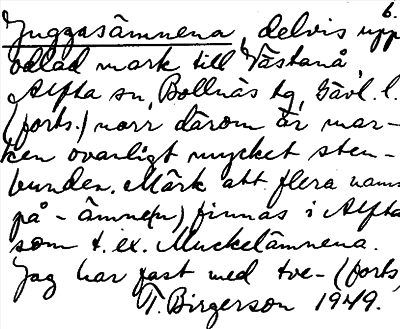 6.
Juggasämnena, delvis upp
odlad mark till Västanå,
Alfta sn, Bollnäs tg, Gävl. l.
(forts.) norr därom är mar-
ken ovanligt mycket sten-
bunden. Märk att flera namn
på -ämne(n) finnas i Alfta
som t. ex. Muckelämnena.
Jag har fast med tve- (forts.)
T. Birgerson 1949.